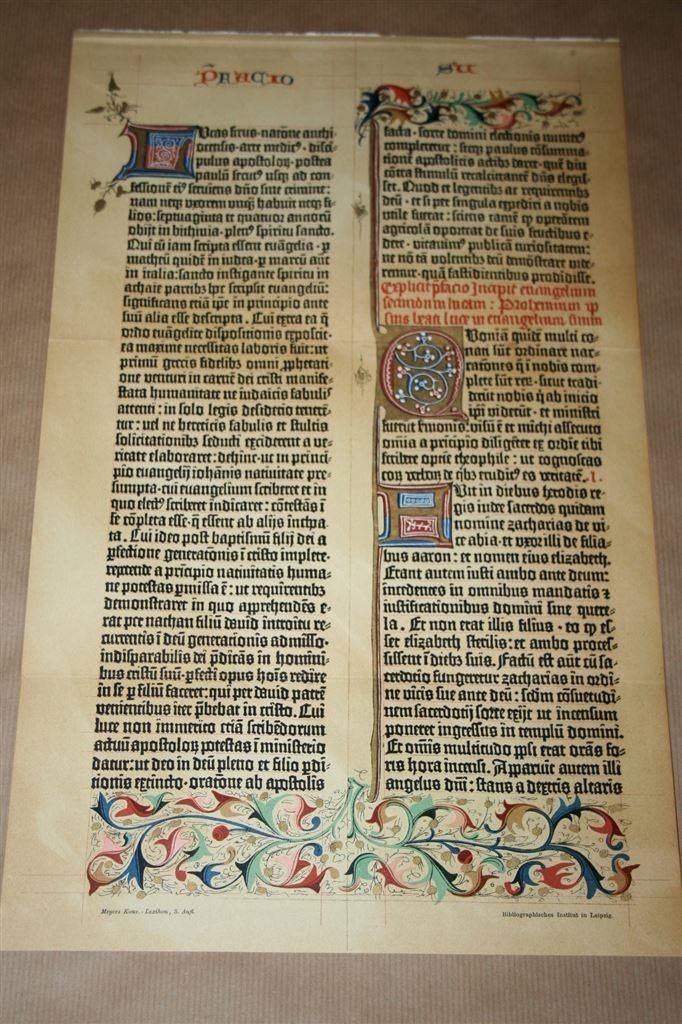 P̄RACIO
SU
Lucas sirus· natiōne anthi-
ocensis· arte medicꝰ· disci-
pulus apostoloꝝ· postea
paulū secutꝰ usqꝫ ad con-
fessionē eiꝰ serviens dn̄o sine crimine:
nam neqꝫ uxorem unqꝫ habuit neqꝫ fi-
lios: septuaginta et quatuor annorū
obijt in bithinia· plenꝰ spiritu sancto.
Qui cū iam scripta essent euāgelia· ꝑ
matheū quidē in iudea· ꝑ marcū aūt
in italia: sancto instigante spiritu in
achaie partibꝫ hoc scripsit euangeliū:
significans etiā ip̄e in principio ante
suū alia esse descripta. Cui extra ea q̄
ordo euāgelice dispositionis exposcit·
ea maxime necessitas laboris fuit: ut
primū grecis fidelibꝫ omni ꝓphetati-
one venturi in carnē dei cristi manife-
stata humanitate ne iudaicis fabulis
attenti: in solo legis desiderio tenerē-
tur: vel ne hereticis fabulis et stultis
solicitationibꝫ seducti exciderent a ve-
ritate elaboraret: dehinc· ut in princi-
pio euangelij iohānis natiuitate pre-
sumpta· cui euangelium scriberet et in
quo electꝰ scriberet indicaret: cōtestās ī
se cōpleta esse· q̄ essent ab alijs incho-
ata. Cui ideo post baptismū filij dei a
ꝑfectione generationis ī cristo implete·
repetende a principio natiuitatis huma-
ne potestas ꝑmissa ē: ut requirentibꝫ
demonstraret in quo apprehendēs e-
rat per nachan filiū dauid introitu re-
currentis ī deū generacionis admisso·
indisparabilis dei p̄dicās in homini-
bus cristū suū· ꝑfecti opus hoīs redire
in se ꝑ filiū faceret: qui per dauid patrē
venientibus iter p̄bebat in cristo. Cui
luce non immerito etiā scribēdorum
actuū apostoloꝝ potestas ī ministerio
datur: ut deo in deū pleno et filio ꝑdi-
tionis extincto· oratōne ab apostolis
facta· sorte domini electionis numerꝰ
compleretur: sicqꝫ paulus cōsumma-
tionē apostolicis actibꝫ daret· quē diu
cōtra stimulū recalcitrantē dn̄s elegis-
set. Quod et legentibꝫ ac requirentibꝫ
deū· et si per singula expediri a nobis
utile fuerat: sciens tamē qꝫ operātem
agricolā oporteat de suis fructibus e-
dere· vitauimꝰ publicā curiositatem:
ne nō tā volentibꝫ deū demōstrare vide-
remur· quā fastidientibus prodidisse.
Explicit p̄facio Incipit euangelium
secundum lucam: Prohemium ip-
sius beati luce in euangelium suum
Quoniā quidē multi co-
nati sūt ordinare nar-
rationes q̄ ī nobis com-
plete sūt reꝝ· sicut tradi-
derūt nobis q̄ ab inicio
ip̄i viderūt· et ministri
fuerūt sermonis: visū ē et michi assecuto
omīa a pricipio diligēter ex ordīe tibi
scribere optīe theophile: ut cognoscas
eoꝝ verboꝝ de qībꝫ eruditꝰ es veritatē. I.
Fuit in diebus herodis re-
gis iude sacerdos quidam
nomine zacharias de vi-
ce abia· et uxor illi de filia-
bus aaron: et nomen eius elizabeth.
Erant autem iusti ambo ante deum:
incedentes in omnibus mandatis ꝛ
iustificationibus domini sine quere-
la. Et non erat illis filius· eo qꝫ es-
set elizabeth sterilis: et ambo proces-
sissent ī diebꝫ suis. Factū est aūt cū sa-
cerdotio fungeretur zacharias in ordi-
ne vicis sue ante deū: scdm cōsuetudi-
nem sacerdotij sorte exijt ut incensum
poneret ingressus in templū domini.
Et omīs multitudo ppl̄i erat orās fo-
ris hora incensi. Apparuit autem illi
angelus dn̄i: stans a dextris altaris
Meyers Konv. - Lexikon, 5. Aufl.
Bibliographisches Institut in Leipzig.